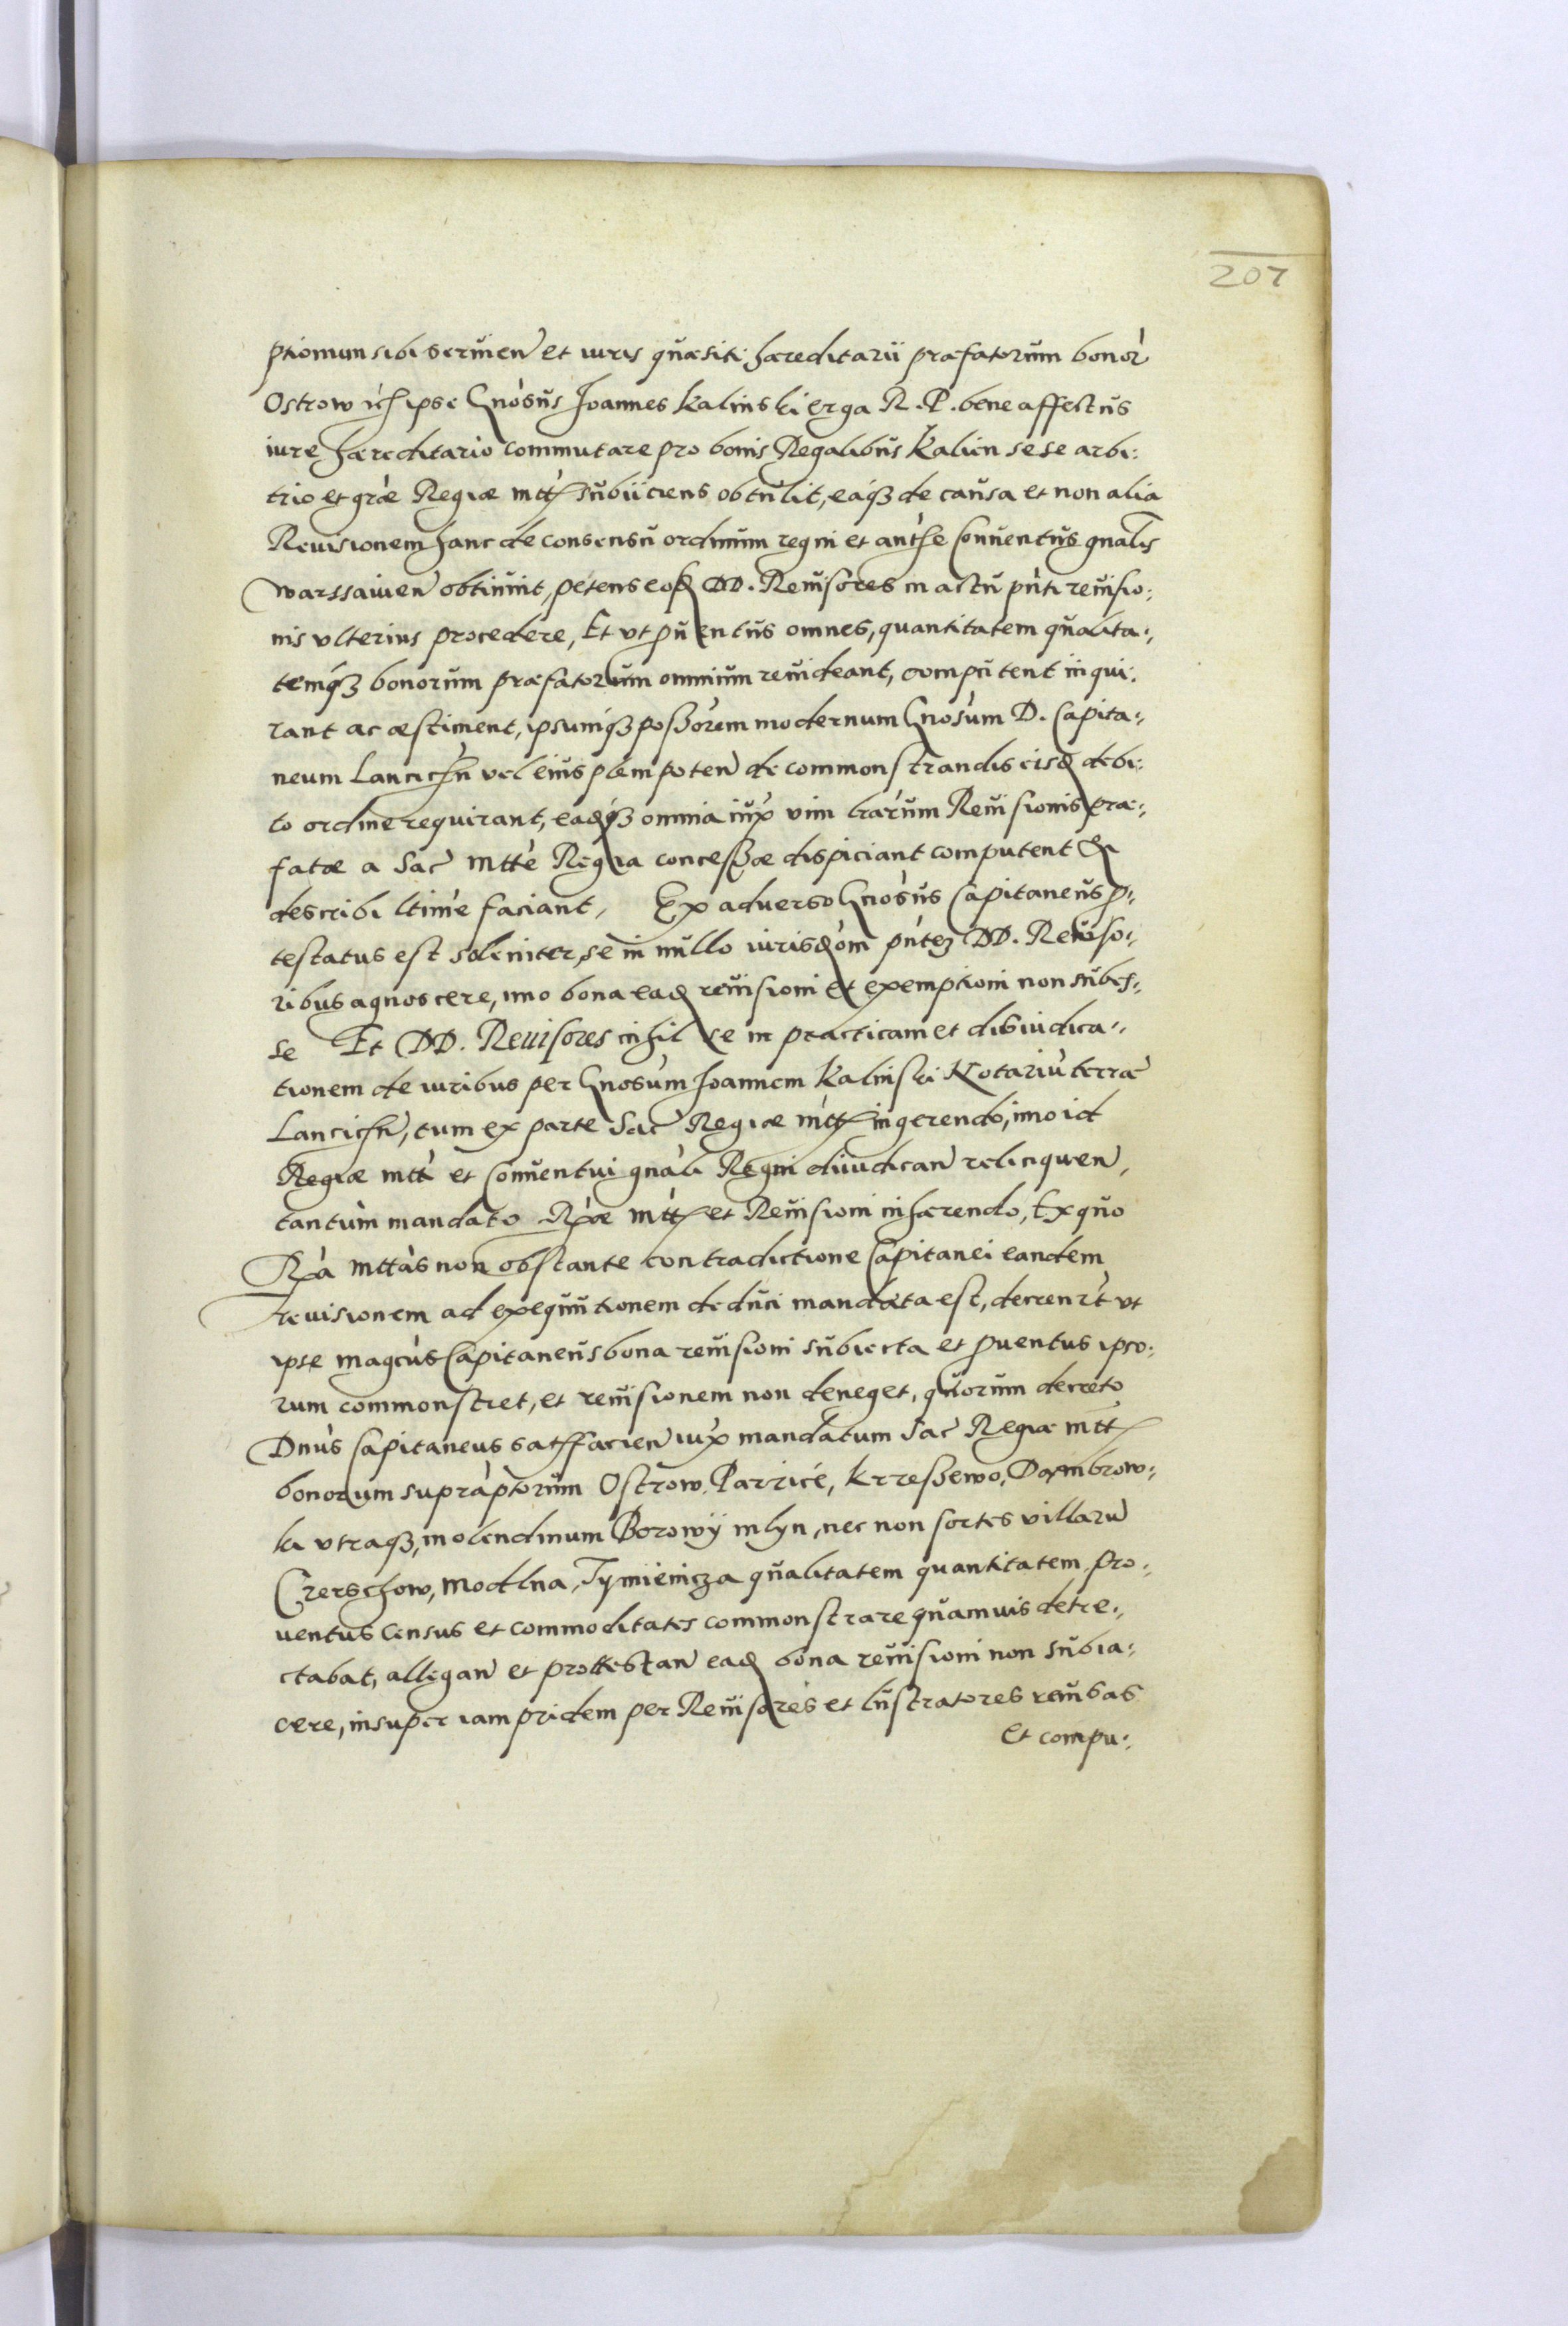 207
ptiomum sibi servien et iuris quæsiti hæreditarii præfatorum bonor
Ostrow ipse Gnosus Joannes Kalinski erga R. P. bene affectus
iure hæreditario commutare pro bonis Regalibus Kalien sese arbi:
trio et græ Regiæ mttis subiiciens obtulit, eaq3 de causa et non alia
Revisionem hanc de consensu ordinum regni et Conventus gnalis
warssavien obtinuit, petens eosd DD. Revisores in actu pnti revisio:
nis ulterius procedere, Et ut pventus omnes, quantitatem qualita:,
temq3 bonorum præfatorum omnium revideant, computent inqui:
rant ac æstiment, ipsumq3 possorem modernum Gnosum D. Capita:,
neum Lancicn vel eius plenipoten de commonstrandis eisd debi:
to ordine requirant, eadq3 omnia iux vim lrarum Revisionis præ:,
fatæ a Sac mtte Regia concessæ dispiciant computent &
describi ltime faciant, Ex adverso Gnosus Capitaneus p:,
testatus est soleniter, se in nullo iurisdom pntez DD. Reviso:,
ribus agnoscere, imo bona ead revisioni et exemptioni non subes:,
se Et DD. Revisores nihil se in practicam et diiudica:,
tionem de iuribus per Gnosum Joannem Kalinski Notariu terræ
Lancicn, tum ex parte Sac Regiæ mttis ingerendo, imo id
Regiæ mtti et Conventui gnali Regni diiudican relinquen,
tantum mandato Rx̃æ mttis et Revisioni inhærendo, Ex quo
Rx̃a mttas non obstante contradictione Capitanei eandem
revisionem ad exequutionem deduci mandata est, decrenrt ut
ipse magcus Capitaneus bona revisioni subiecta et pventus ipso:
rum commonstret, et revisionem non deneget, quorum decreto
Dnus Capitaneus satsfacien iux mandatum Sac Regiæ mttis
bonorum supraptorum Ostrow, Parzice, Krzessewo, Dambrow:,
ka utraq3, molendinum Borowÿ mlyn, nec non sortes villaru
Czerschow, Modlna, Tymienicza qualitatem quantitatem pro:,
ventus census et commoditates commonstrare quamvis detre:,
ctabat, allegan et prottestan ead bona revisioni non subia:,
cere, insuper iampridem per Revisores et lustratores revisas
et compu:,